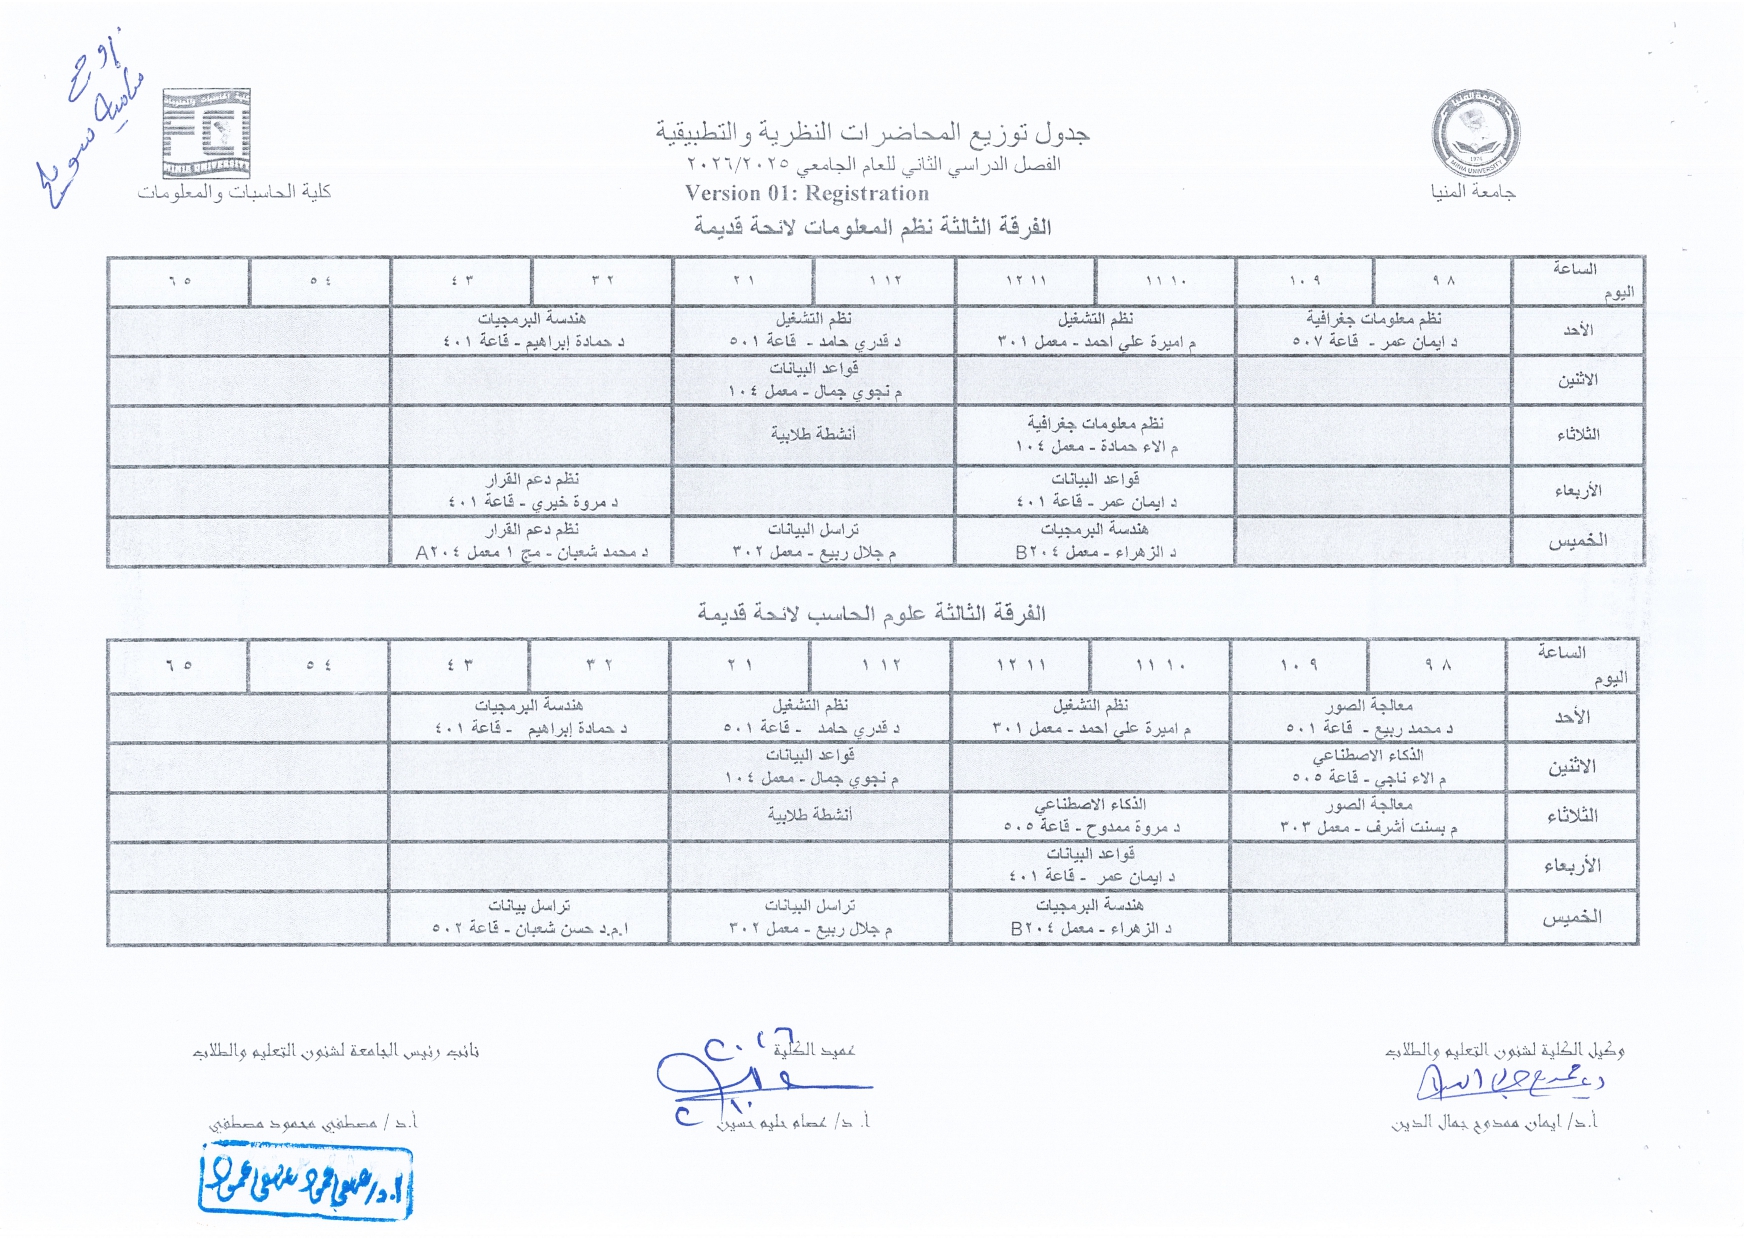 جدول توزيع المحاضرات النظرية والتطبيقية
الفصل الدراسي الثاني للعام الجامعي ٢٠٢٦/٢٠٢٥
Version 01: Registration
جامعة المنيا
كلية الحاسبات والمعلومات
MINIA UNIVERSITY
الفرقة الثالثة نظم المعلومات لائحة قديمة
الساعة
اليوم
٨ ٩
٩ ١٠
١٠ ١١
١١ ١٢
١٢ ١
١ ٢
٢ ٣
٣ ٤
٤ ٥
٥ ٦
الأحد
نظم معلومات جغرافية
د ايمان عمر - قاعة ٥٠٧
نظم التشغيل
م اميرة علي احمد - معمل ٣٠١
نظم التشغيل
د قدري حامد - قاعة ٥٠١
هندسة البرمجيات
د حمادة إبراهيم - قاعة ٤٠١
الاثنين
قواعد البيانات
م نجوي جمال - معمل ١٠٤
الثلاثاء
نظم معلومات جغرافية
م الاء حمادة - معمل ١٠٤
أنشطة طلابية
الأربعاء
قواعد البيانات
د ايمان عمر - قاعة ٤٠١
نظم دعم القرار
د مروة خيري - قاعة ٤٠١
الخميس
هندسة البرمجيات
د الزهراء - معمل B٢٠٤
تراسل البيانات
م جلال ربيع - معمل ٣٠٢
نظم دعم القرار
د محمد شعبان - مج ١ معمل A٢٠٤
الفرقة الثالثة علوم الحاسب لائحة قديمة
الساعة
اليوم
٨ ٩
٩ ١٠
١٠ ١١
١١ ١٢
١٢ ١
١ ٢
٢ ٣
٣ ٤
٤ ٥
٥ ٦
الأحد
معالجة الصور
د محمد ربيع - قاعة ٥٠١
نظم التشغيل
م اميرة علي احمد - معمل ٣٠١
نظم التشغيل
د قدري حامد - قاعة ٥٠١
هندسة البرمجيات
د حمادة إبراهيم - قاعة ٤٠١
الاثنين
الذكاء الاصطناعي
م الاء ناجي - قاعة ٥٠٥
قواعد البيانات
م نجوي جمال - معمل ١٠٤
الثلاثاء
معالجة الصور
م بسنت أشرف - معمل ٣٠٣
الذكاء الاصطناعي
د مروة ممدوح - قاعة ٥٠٥
أنشطة طلابية
الأربعاء
قواعد البيانات
د ايمان عمر - قاعة ٤٠١
الخميس
هندسة البرمجيات
د الزهراء - معمل B٢٠٤
تراسل البيانات
م جلال ربيع - معمل ٣٠٢
تراسل بيانات
ا.م.د حسن شعبان - قاعة ٥٠٢
وكيل الكلية لشئون التعليم والطلاب
أ.د/ ايمان ممدوح جمال الدين
عميد الكلية
٢٠٢٦
أ. د/ عصام حليم حسين
نائب رئيس الجامعة لشئون التعليم والطلاب
أ.د / مصطفي محمود مصطفي
ا.د/ مصطفى محمود مصطفى محمود